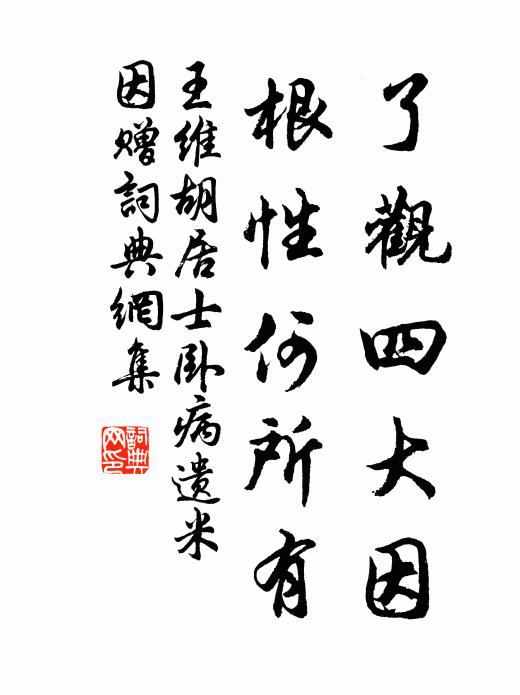 了觀四大因
根性何所有
王維胡居士臥病遺米
因贈詞典網集
詞典
网印